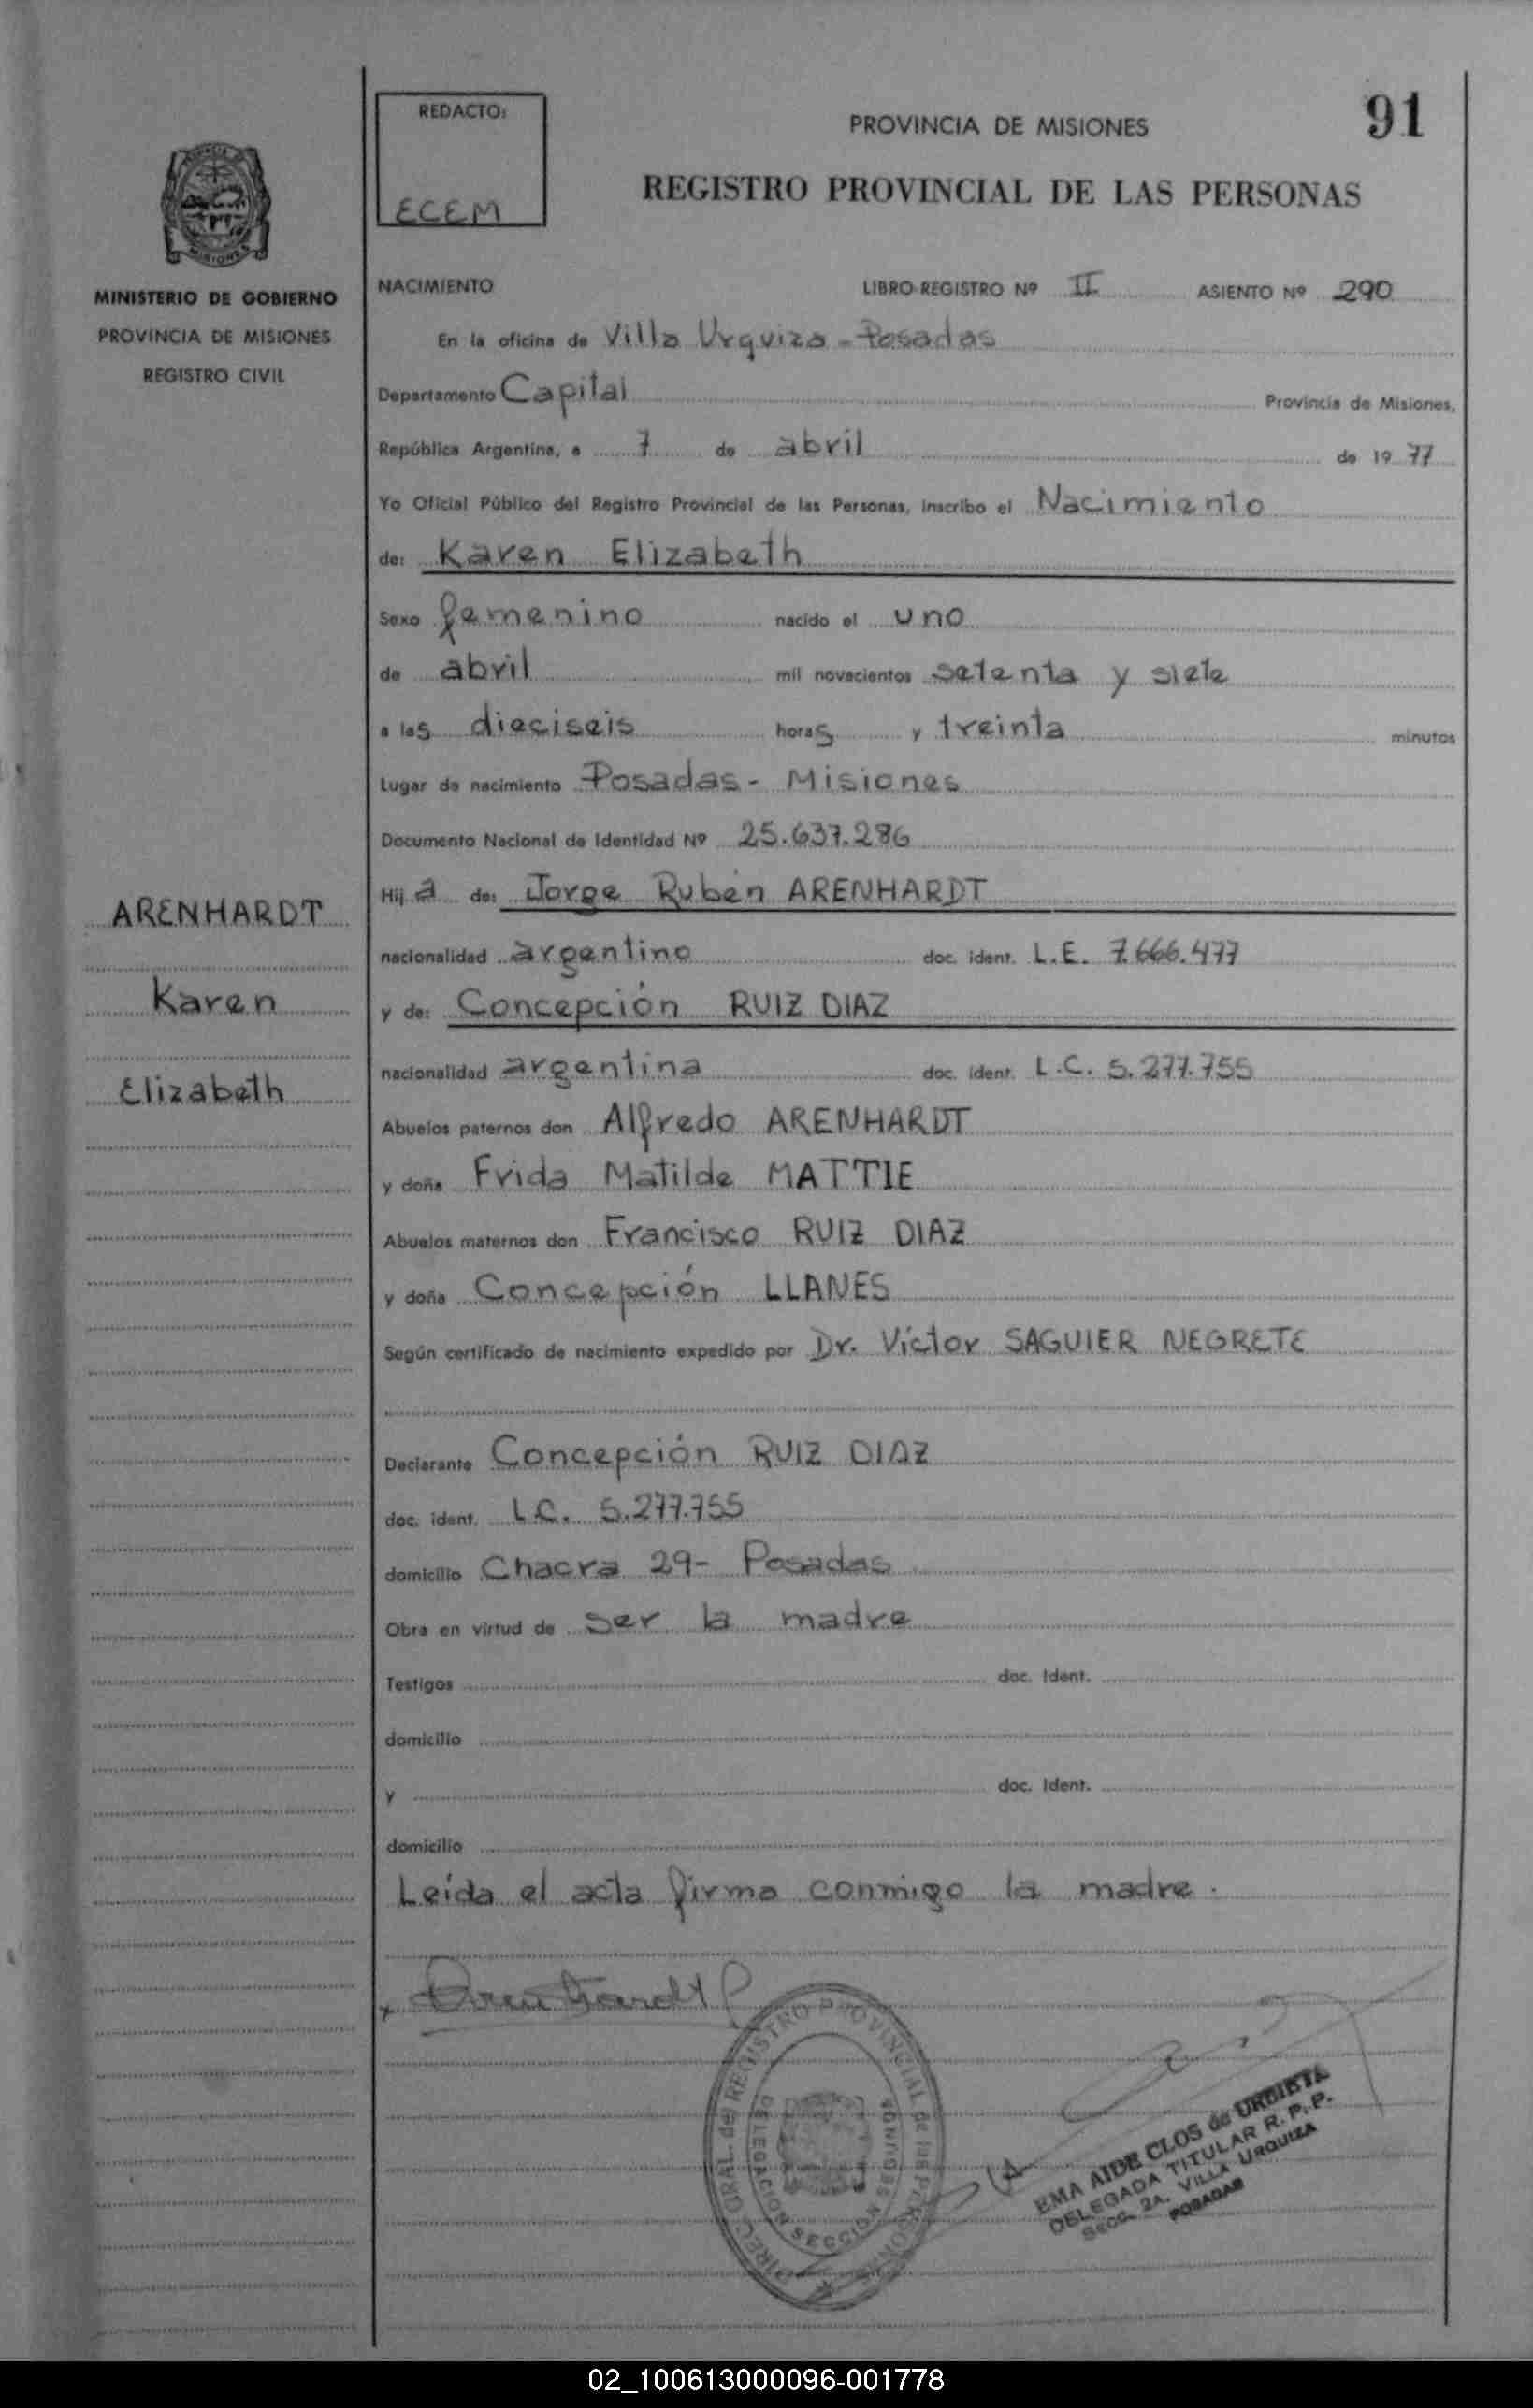 REDACTO:
ECEM
PROVINCIA DE MISIONES
91
REGISTRO PROVINCIAL DE LAS PERSONAS
MISIONES
MINISTERIO DE GOBIERNO
PROVINCIA DE MISIONES
REGISTRO CIVIL
NACIMIENTO LIBRO-REGISTRO Nº II ASIENTO Nº 290
En la oficina de Villa Urquiza - Posadas
Departamento Capital Provincia de Misiones,
República Argentina, a 7 de abril de 19 77
Yo Oficial Público del Registro Provincial de las Personas, inscribo el Nacimiento
de: Karen Elizabeth
Sexo femenino nacido el uno
de abril mil novecientos setenta y siete
a las dieciseis horas y treinta minutos
Lugar de nacimiento Posadas - Misiones
Documento Nacional de Identidad Nº 25.637.286
Hij a de: Jorge Rubén ARENHARDT
ARENHARDT
nacionalidad argentino doc. ident. L.E. 7.666.477
Karen
y de: Concepción RUIZ DIAZ
nacionalidad argentina doc. ident. L.C. 5.277.755
Elizabeth
Abuelos paternos don Alfredo ARENHARDT
y doña Frida Matilde MATTIE
Abuelos maternos don Francisco RUIZ DIAZ
y doña Concepción LLANES
Según certificado de nacimiento expedido por Dr. Víctor SAGUIER NEGRETE
Declarante Concepción RUIZ DIAZ
doc. ident. L.C. 5.277.755
domicilio Chacra 29- Posadas
Obra en virtud de ser la madre
Testigos doc. Ident.
domicilio
y doc. Ident.
domicilio
Leída el acta firma conmigo la madre.
DIREC. GRAL. del REGISTRO PROVINCIAL de las PERSONAS
DELEGACION SECCION SEGUNDA
EMA AIDE CLOS de URDIETA
DELEGADA TITULAR R. P. P.
Secc. 2A. VILLA URQUIZA
POSADAS
02_100613000096-001778